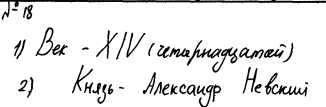 № 18
1) Век - XIV (четырнадцатый)
2) Князь - Александр Невский